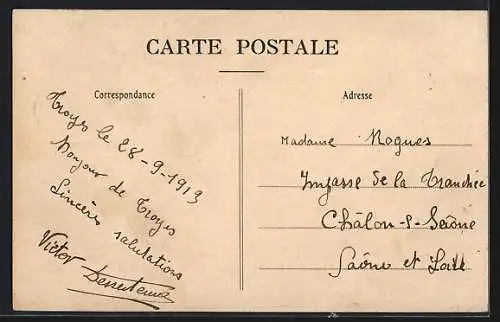 CARTE POSTALE
Correspondance
Troyes le 28-9-1913
Bonjour de Troyes
Sincères salutations
Victor
Adresse
Madame Nogues
Impasse de la Tranchée
Châlon-s-Saône
Saône et Loire